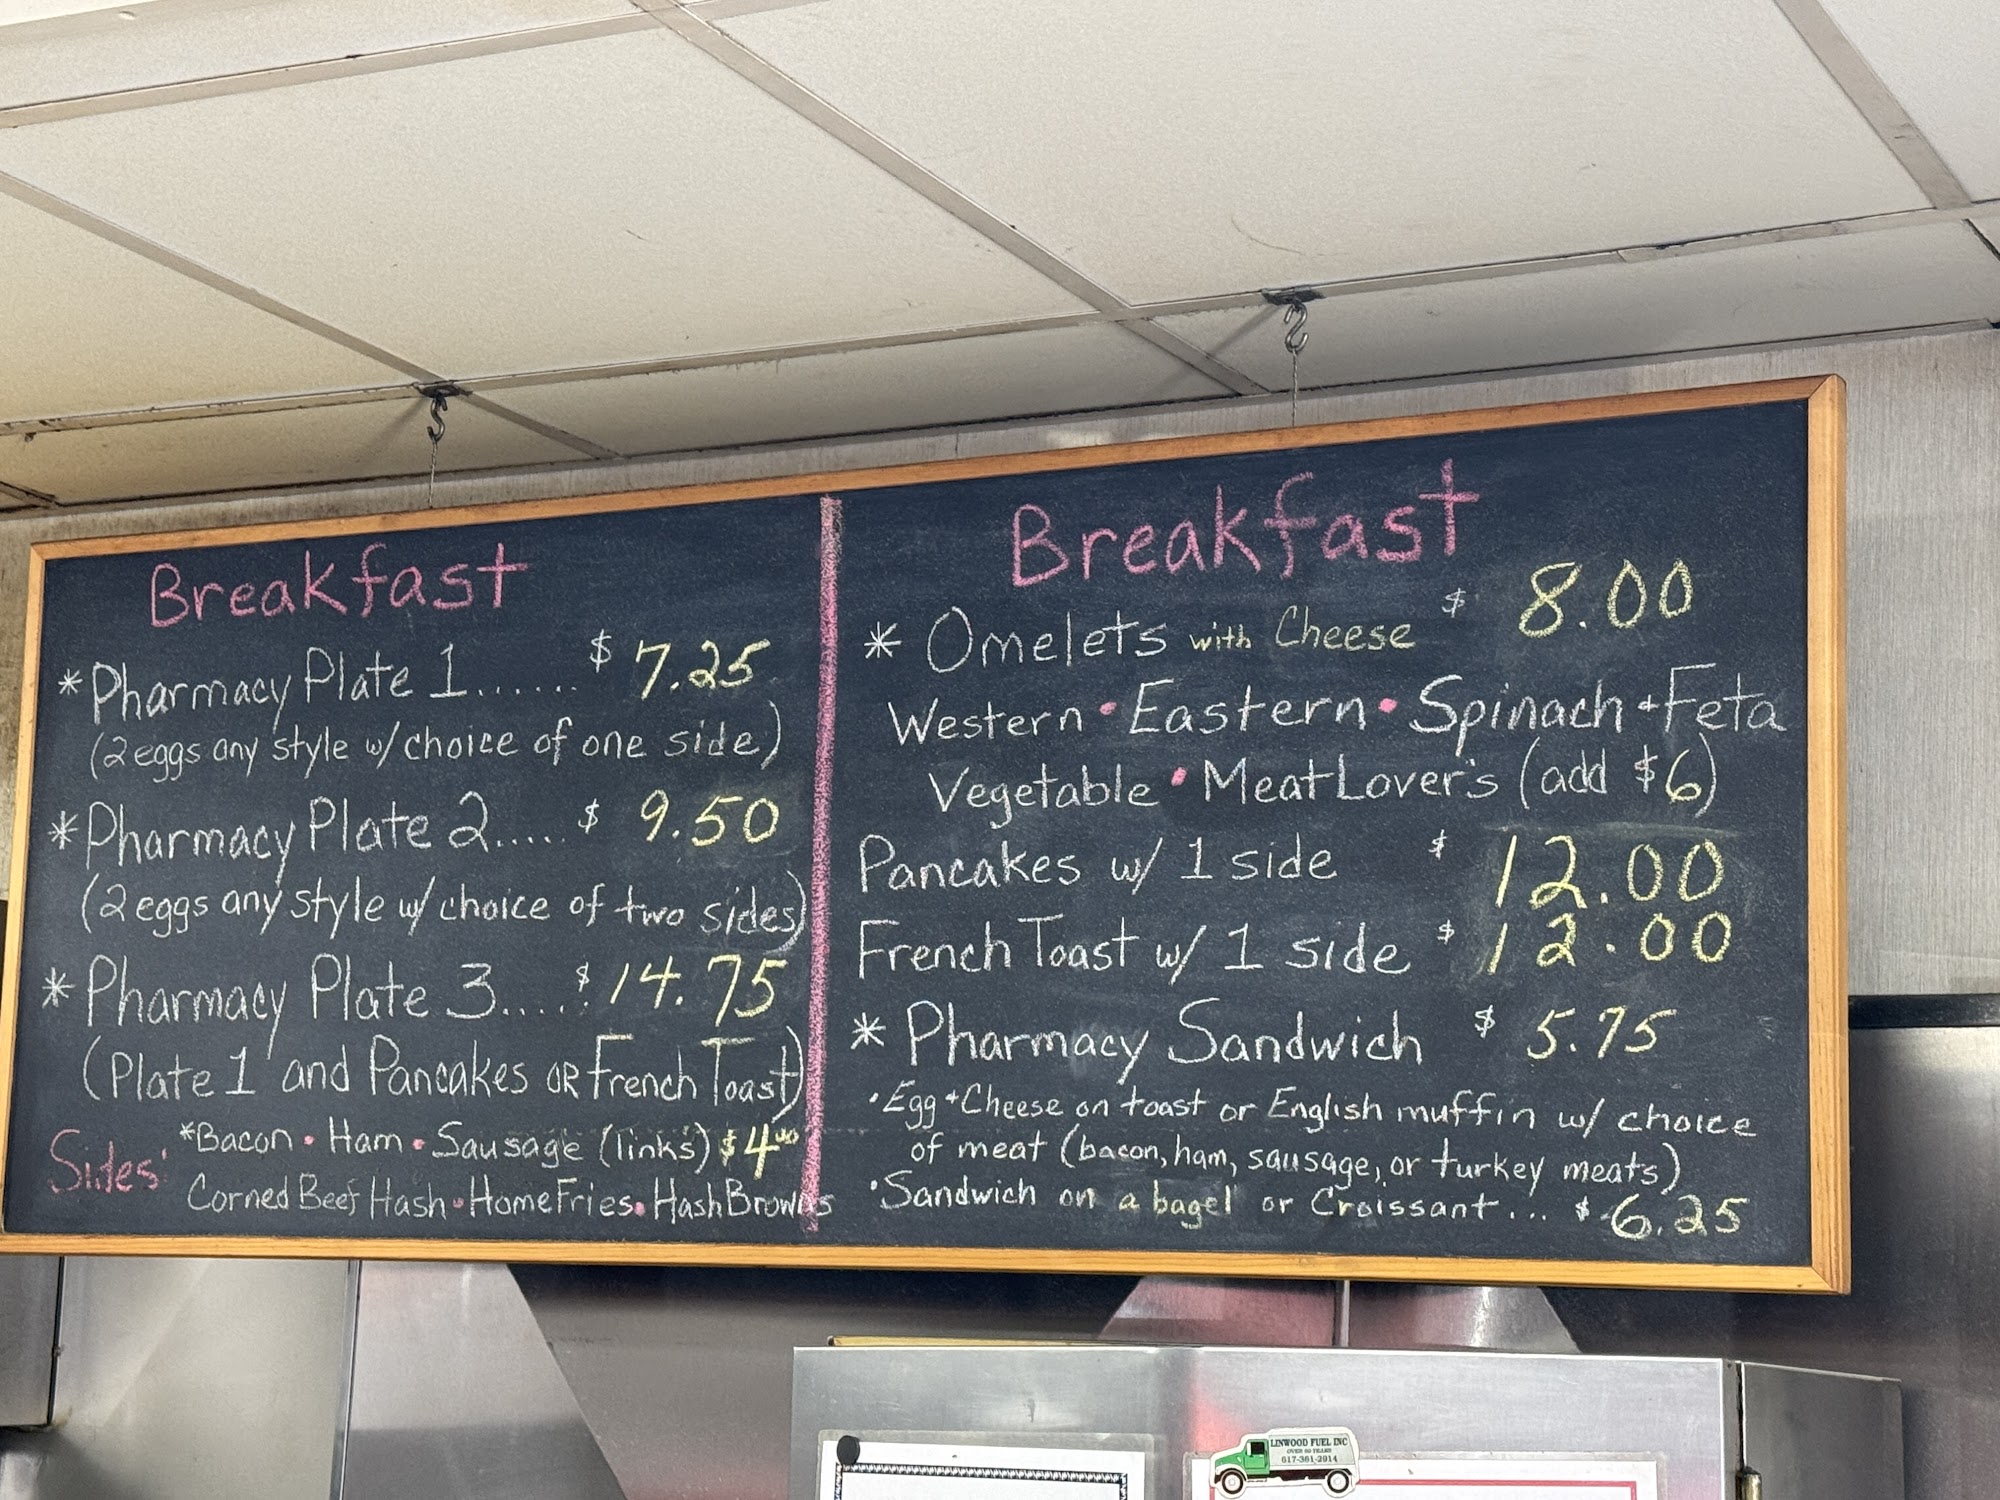 Breakfast
* Pharmacy Plate 1...... $ 7.25
(2 eggs any style w/ choice of one side)
* Pharmacy Plate 2..... $ 9.50
(2 eggs any style w/ choice of two sides)
* Pharmacy Plate 3..... $ 14.75
(Plate 1 and Pancakes OR French Toast)
Sides: *Bacon • Ham • Sausage (links) $4.00
Corned Beef Hash • Home Fries • Hash Browns
Breakfast
* Omelets with Cheese $ 8.00
Western • Eastern • Spinach + Feta
Vegetable • Meat Lover's (add $6)
Pancakes w/ 1 side $ 12.00
French Toast w/ 1 side $ 12.00
* Pharmacy Sandwich $ 5.75
• Egg + Cheese on toast or English muffin w/ choice
of meat (bacon, ham, sausage, or turkey meats)
• Sandwich on a bagel or Croissant... $ 6.25
LINWOOD FUEL INC
OVER 60 YEARS
617-361-2914